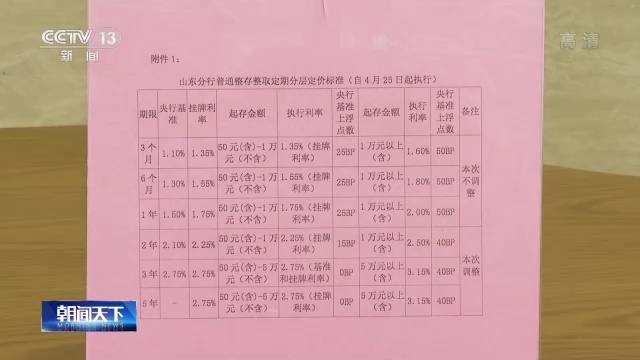 CCTV 13
新闻
高清
附件1：
山东分行普通整存整取定期分层定价标准（自4月25日起执行）
期限 央行基准 挂牌利率 起存金额 执行利率 央行基准上浮点数 起存金额 执行利率 央行基准上浮点数 备注
3个月 1.10% 1.35% 50元(含)-1万元（不含） 1.35%（挂牌利率） 25BP 1万元以上（含） 1.60% 50BP 本次不调整
6个月 1.30% 1.55% 50元(含)-1万元（不含） 1.55%（挂牌利率） 25BP 1万元以上（含） 1.80% 50BP
1年 1.50% 1.75% 50元(含)-1万元（不含） 1.75%（挂牌利率） 25BP 1万元以上（含） 2.00% 50BP
2年 2.10% 2.25% 50元(含)-1万元（不含） 2.25%（挂牌利率） 15BP 1万元以上（含） 2.50% 40BP 本次调整
3年 2.75% 2.75% 50元(含)-5万元（不含） 2.75%（基准和挂牌利率） 0BP 5万元以上（含） 3.15% 40BP
5年 - 2.75% 50元(含)-5万元（不含） 2.75%（挂牌利率） 0BP 5万元以上（含） 3.15% 40BP
朝闻天下
MORNING NEWS